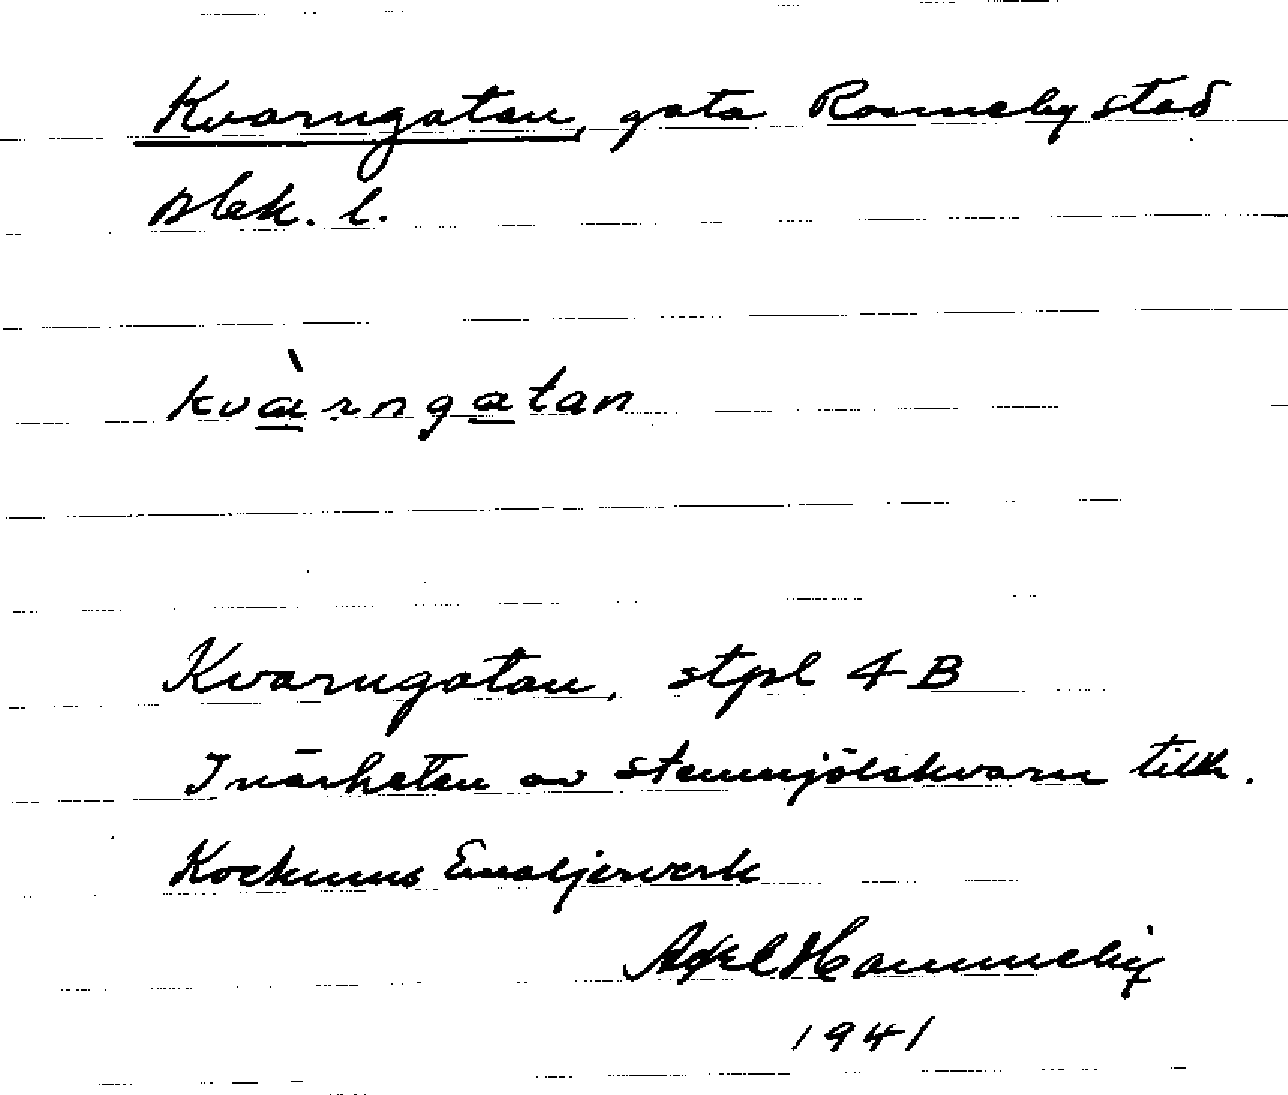 Kvarngatan, gata Ronneby stad
Blek. l.
kvæ̀rngatan
Kvarngatan, stpl 4 B
I närheten av stenmjölskvarn tillh.
Kockums Emaljerverk
Axel
1941